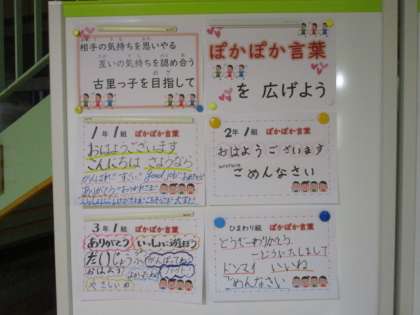 相手の気持ちを思いやる
互いの気持ちを認め合う
古里っ子を目指して
ぽかぽか言葉
を 広げよう
1年1組 ぽかぽか言葉
おはようございます
こんにちは さようなら
がんばれ すごい Good job
ありがとう
2年1組 ぽかぽか言葉
おはようございます
ごめんなさい
3年1組 ぽかぽか言葉
ありがとう いっしょに遊ぼう
だいじょうぶ がんばってね
おはよう
やさしいね
ひまわり組 ぽかぽか言葉
どうぞ ありがとう
どういたしまして
ドンマイ いいね
ごめんなさい